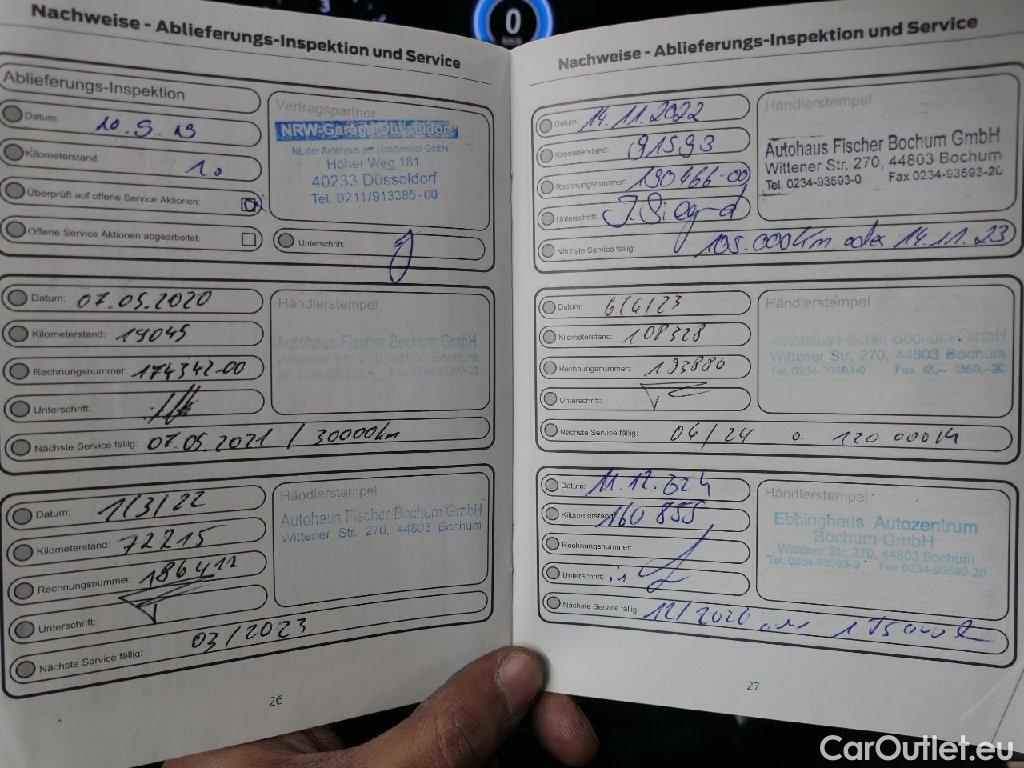 0
Nachweise - Ablieferungs-Inspektion und Service
Ablieferungs-Inspektion
Datum: 10.9.19
Kilometerstand: 10
Überprüft auf offene Service Aktionen:
Offene Service Aktionen abgearbeitet:
Vertragspartner
NRW-Garage Düsseldorf
NL der Autohaus am Handweiser GmbH
Höher Weg 181
40233 Düsseldorf
Tel. 0211/913385-00
Unterschrift:
Datum: 07.05.2020
Kilometerstand: 19045
Rechnungsnummer: 174342-00
Unterschrift:
Nächste Service fällig: 07.05.2021 / 30000km
Händlerstempel
Autohaus Fischer Bochum GmbH
Wittener Str. 270, 44803 Bochum
Tel. 0234-93593-0 Fax 0234-93593-20
Datum: 1/3/22
Kilometerstand: 72215
Rechnungsnummer: 186411
Unterschrift:
Nächste Service fällig: 03/2023
Händlerstempel
Autohaus Fischer Bochum GmbH
Wittener Str. 270, 44803 Bochum
26
Nachweise - Ablieferungs-Inspektion und Service
Datum: 14.11.2022
Kilometerstand: 91593
Rechnungsnummer: 190466-00
Unterschrift:
Nächste Service fällig: 105.000km oder 14.11.23
Händlerstempel
Autohaus Fischer Bochum GmbH
Wittener Str. 270, 44803 Bochum
Tel. 0234-93593-0 Fax 0234-93593-20
Datum: 6/4/23
Kilometerstand: 108328
Rechnungsnummer: 193886
Unterschrift:
Nächste Service fällig: 04/24 o 120 000
Händlerstempel
Autohaus Fischer Bochum GmbH
Wittener Str. 270, 44803 Bochum
Tel. 0234-93593-0 Fax
Datum: 11.12.24
Kilometerstand: 160 855
Rechnungsnummer:
Unterschrift:
Nächste Service fällig: 12/2026
Händlerstempel
Ebbinghaus Autozentrum
Bochum GmbH
Wittener Str. 270, 44803 Bochum
Tel. 0234-93593-0 Fax 0234-93593-20
27
CarOutlet.eu